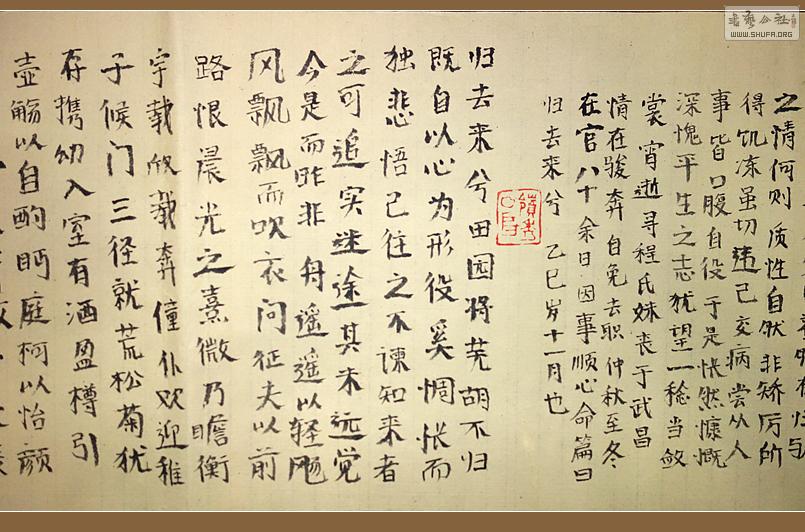 有归与
之情何则质性自然非矫厉所
得饥冻虽切违己交病尝从人
事皆口腹自役于是怅然慷慨
深愧平生之志犹望一稔当敛
裳宵逝寻程氏妹丧于武昌
情在骏奔自免去职仲秋至冬
在官八十余日因事顺心命篇曰
归去来兮 乙巳岁十一月也
归去来兮田园将芜胡不归
既自以心为形役奚惆怅而
独悲悟已往之不谏知来者
之可追实迷途其未远觉
今是而昨非舟遥遥以轻飏
风飘飘而吹衣问征夫以前
路恨晨光之熹微乃瞻衡
宇载欣载奔僮仆欢迎稚
子候门三径就荒松菊犹
存携幼入室有酒盈樽引
壶觞以自酌眄庭柯以怡颜
WWW.SHUFA.ORG